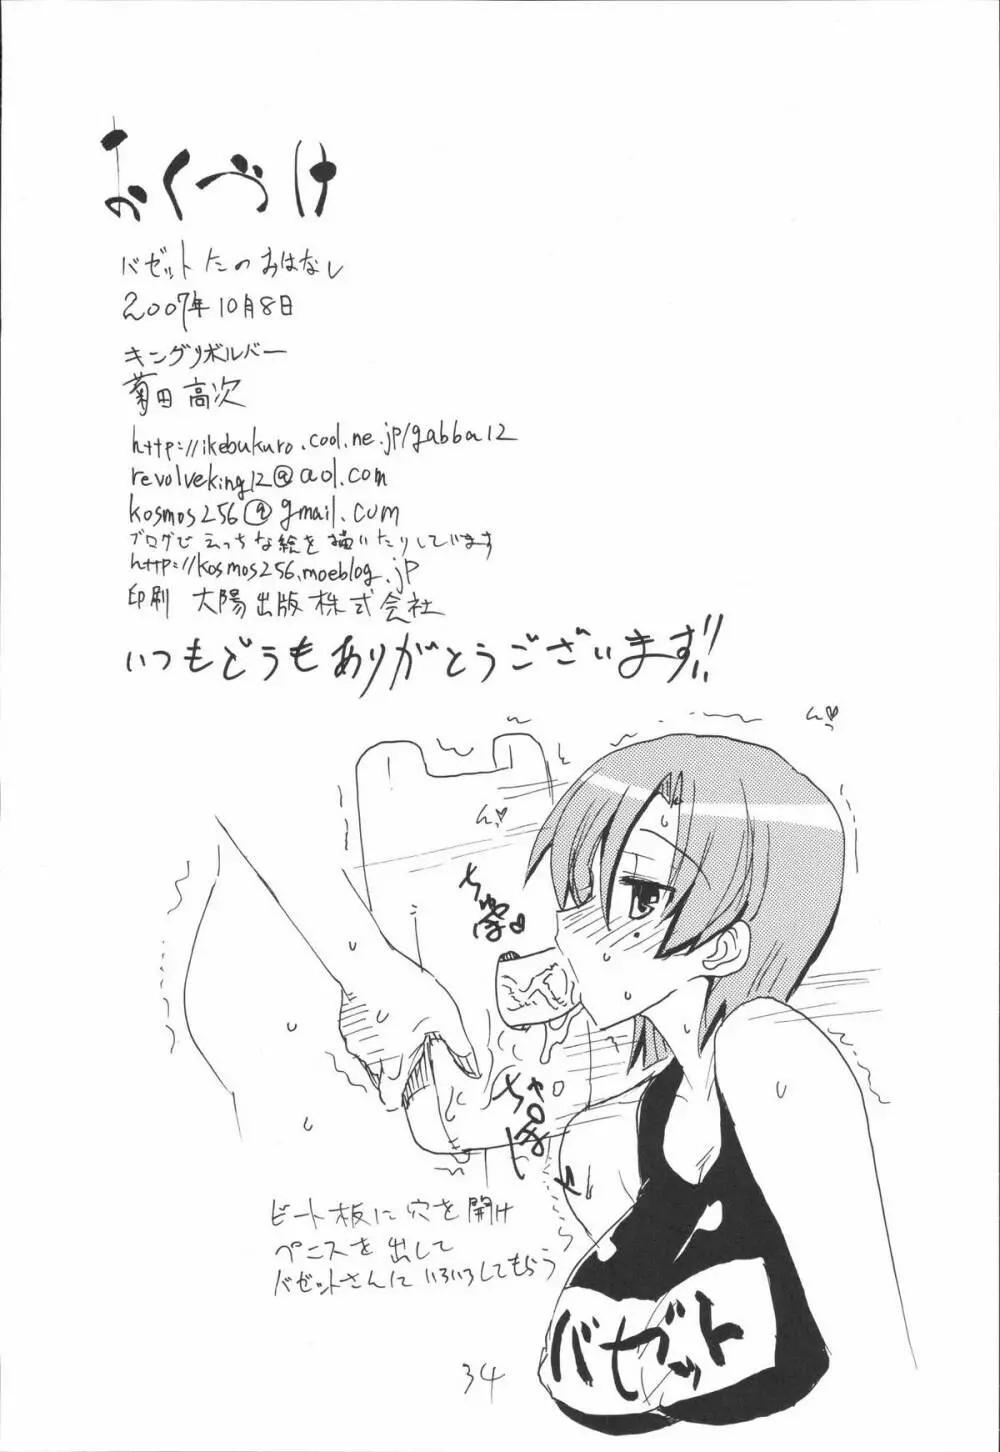 おくづけ
バゼットたのおはなし
2007年10月8日
キングリボルバー
菊田高次
http://ikebukuro.cool.ne.jp/gabba12
revolveking12@aol.com
kosmos256@gmail.com
ブログでえっちな絵を描いたりしています
http://kosmos256.moeblog.jp
印刷 大陽出版株式会社
いつもどうもありがとうございます!!
ん♥
ん♥
ちゅぽ♥
ちゃぽ
ビート板に穴を開け
ペニスを出して
バゼットさんにいろいろしてもらう
バゼット
34